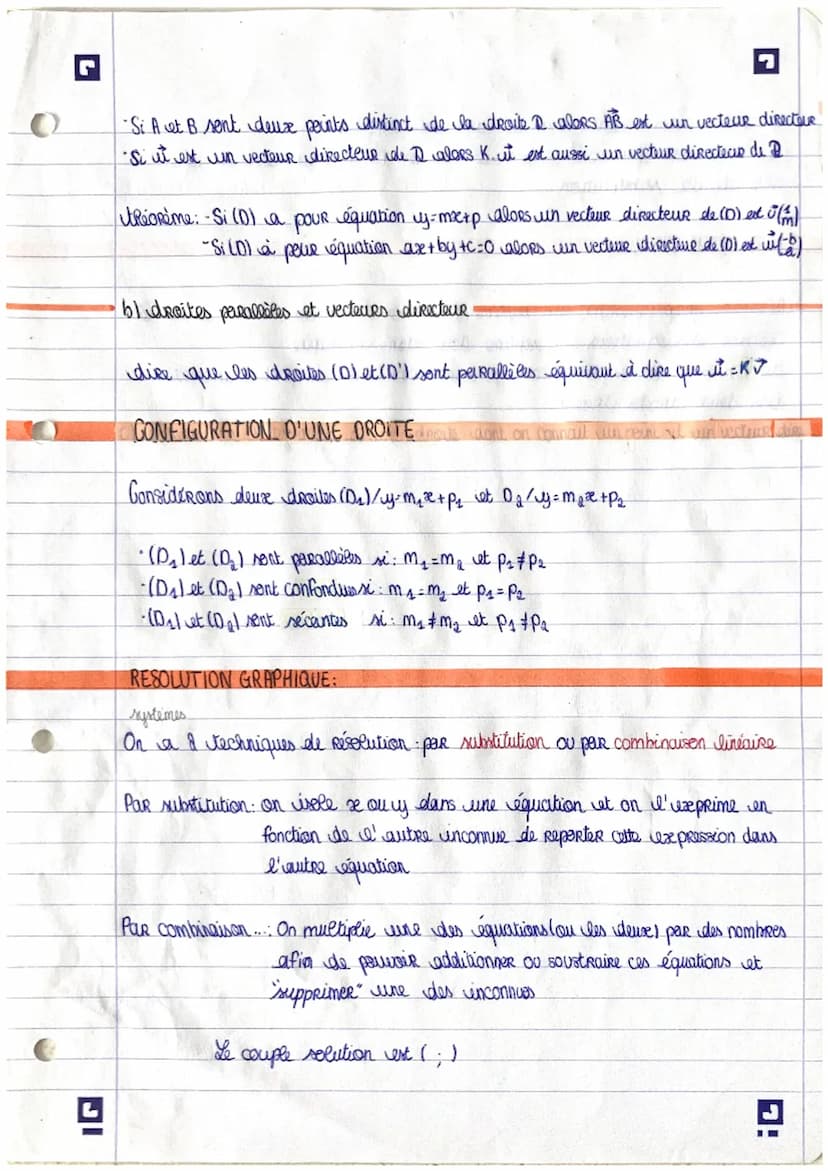 ·Si A et B sont deux points distinct de la droite D alors AB⃗ est un vecteur directeur
·Si u⃗ est un vecteur directeur de D alors K.u⃗ est aussi un vecteur directeur de D
théorème: -Si (D) a pour équation y=mx+p alors un vecteur directeur de (D) est u⃗(1 m)
-Si (D) à pour équation ax+by+c=0 alors un vecteur directeur de (D) est u⃗(-b a)
b) droites parallèles et vecteurs directeur
dire que les droites (D) et (D') sont parallèles équivaut à dire que u⃗ = K v⃗
CONFIGURATION D'UNE DROITE
Considérons deux droites (D₁)/y=m₁x+p₁ et D₂/y=m₂x+p₂
·(D₁) et (D₂) sont parallèles si: m₁=m₂ et p₁≠p₂
·(D₁) et (D₂) sont confondues si: m₁=m₂ et p₁=p₂
·(D₁) et (D₂) sont sécantes si: m₁≠m₂ et p₁≠p₂
RESOLUTION GRAPHIQUE:
systèmes
On a 2 techniques de résolution: par substitution ou par combinaison linéaire
Par substitution: on isole x ou y dans une équation et on l'exprime en
fonction de l'autre inconnue de reporter cette expression dans
l'autre équation
Par combinaison...: On multiplie une des équations (ou les deux) par des nombres
afin de pouvoir additionner ou soustraire ces équations et
"supprimer" une des inconnues
Le couple solution est ( ; )